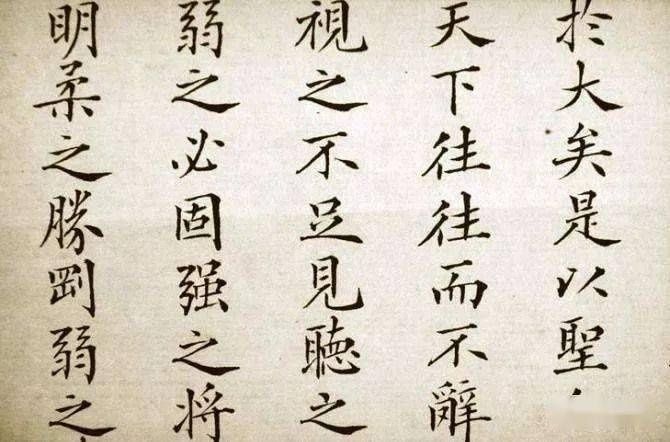 於大矣是以聖
天下往往而不辭
視之不足見聽之
弱之必固强之将
明柔之勝剛弱之